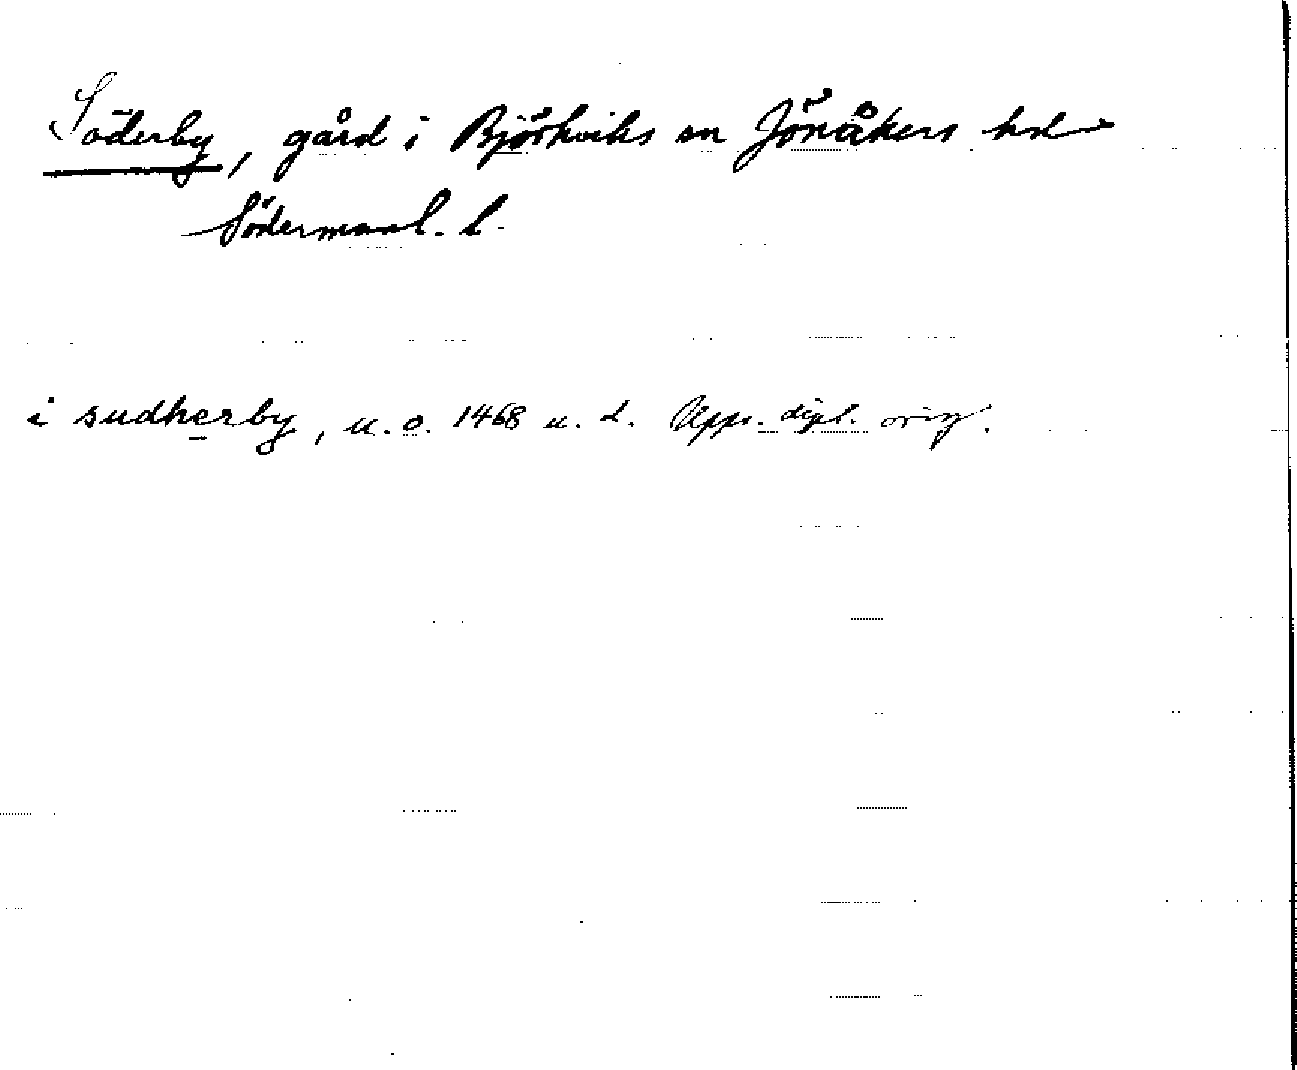 Söderby, gård i Björkviks sn Jönåkers hd
Södermanl. l.
i sudherby, u. o. 1468 u. d. Upps. dipl. orig.